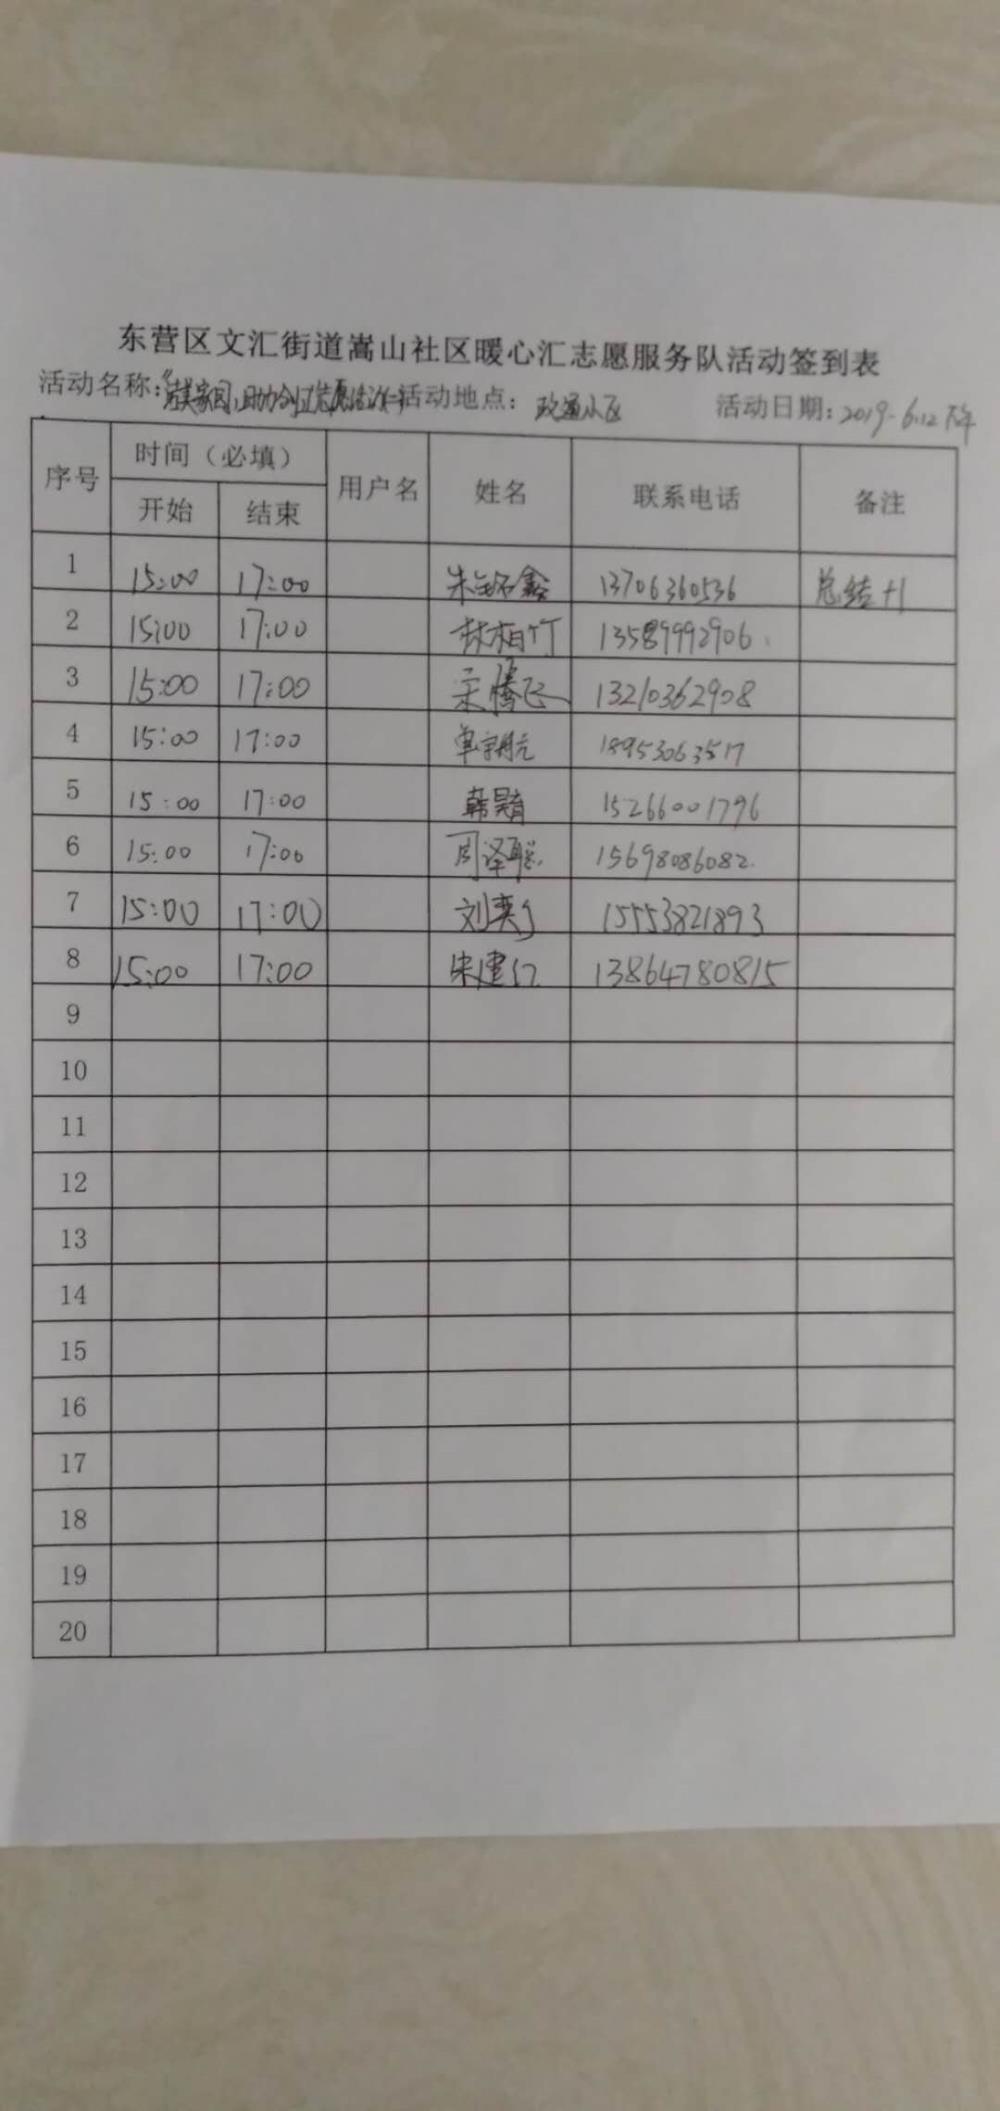 东营区文汇街道嵩山社区暖心汇志愿服务队活动签到表
活动名称: 家园 助力创 志愿活动 活动地点: 政通小区 活动日期: 2019.6.12 下午
序号 时间（必填） 用户名 姓名 联系电话 备注
开始 结束
1 15:00 17:00 朱 鑫 13706360536 总结+1
2 15:00 17:00 林相竹 13589992906
3 15:00 17:00 宋腾飞 13210362908
4 15:00 17:00 单宇航 18953063517
5 15:00 17:00 韩 15266001796
6 15:00 17:00 周泽聪 15698086082
7 15:00 17:00 刘奕 15553821893
8 15:00 17:00 宋建仁 13864780815
9
10
11
12
13
14
15
16
17
18
19
20